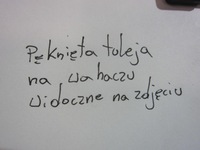 Pęknięta tuleja
na wahaczu
widoczne na zdjęciu